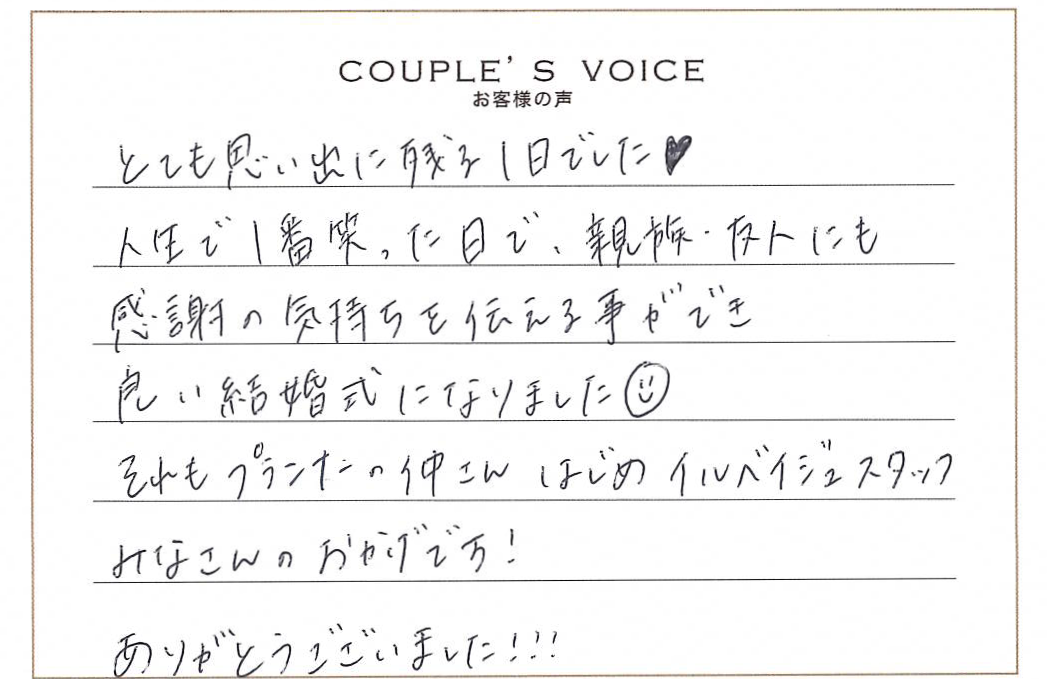 COUPLE'S VOICE
お客様の声
とても思い出に残る1日でした♥
人生で1番笑った日で、親族・友人にも
感謝の気持ちを伝える事ができ
良い結婚式になりました☺
それもプランナーの仲さんはじめイルベイジュスタッフ
みなさんのおかげです!
ありがとうございました!!!